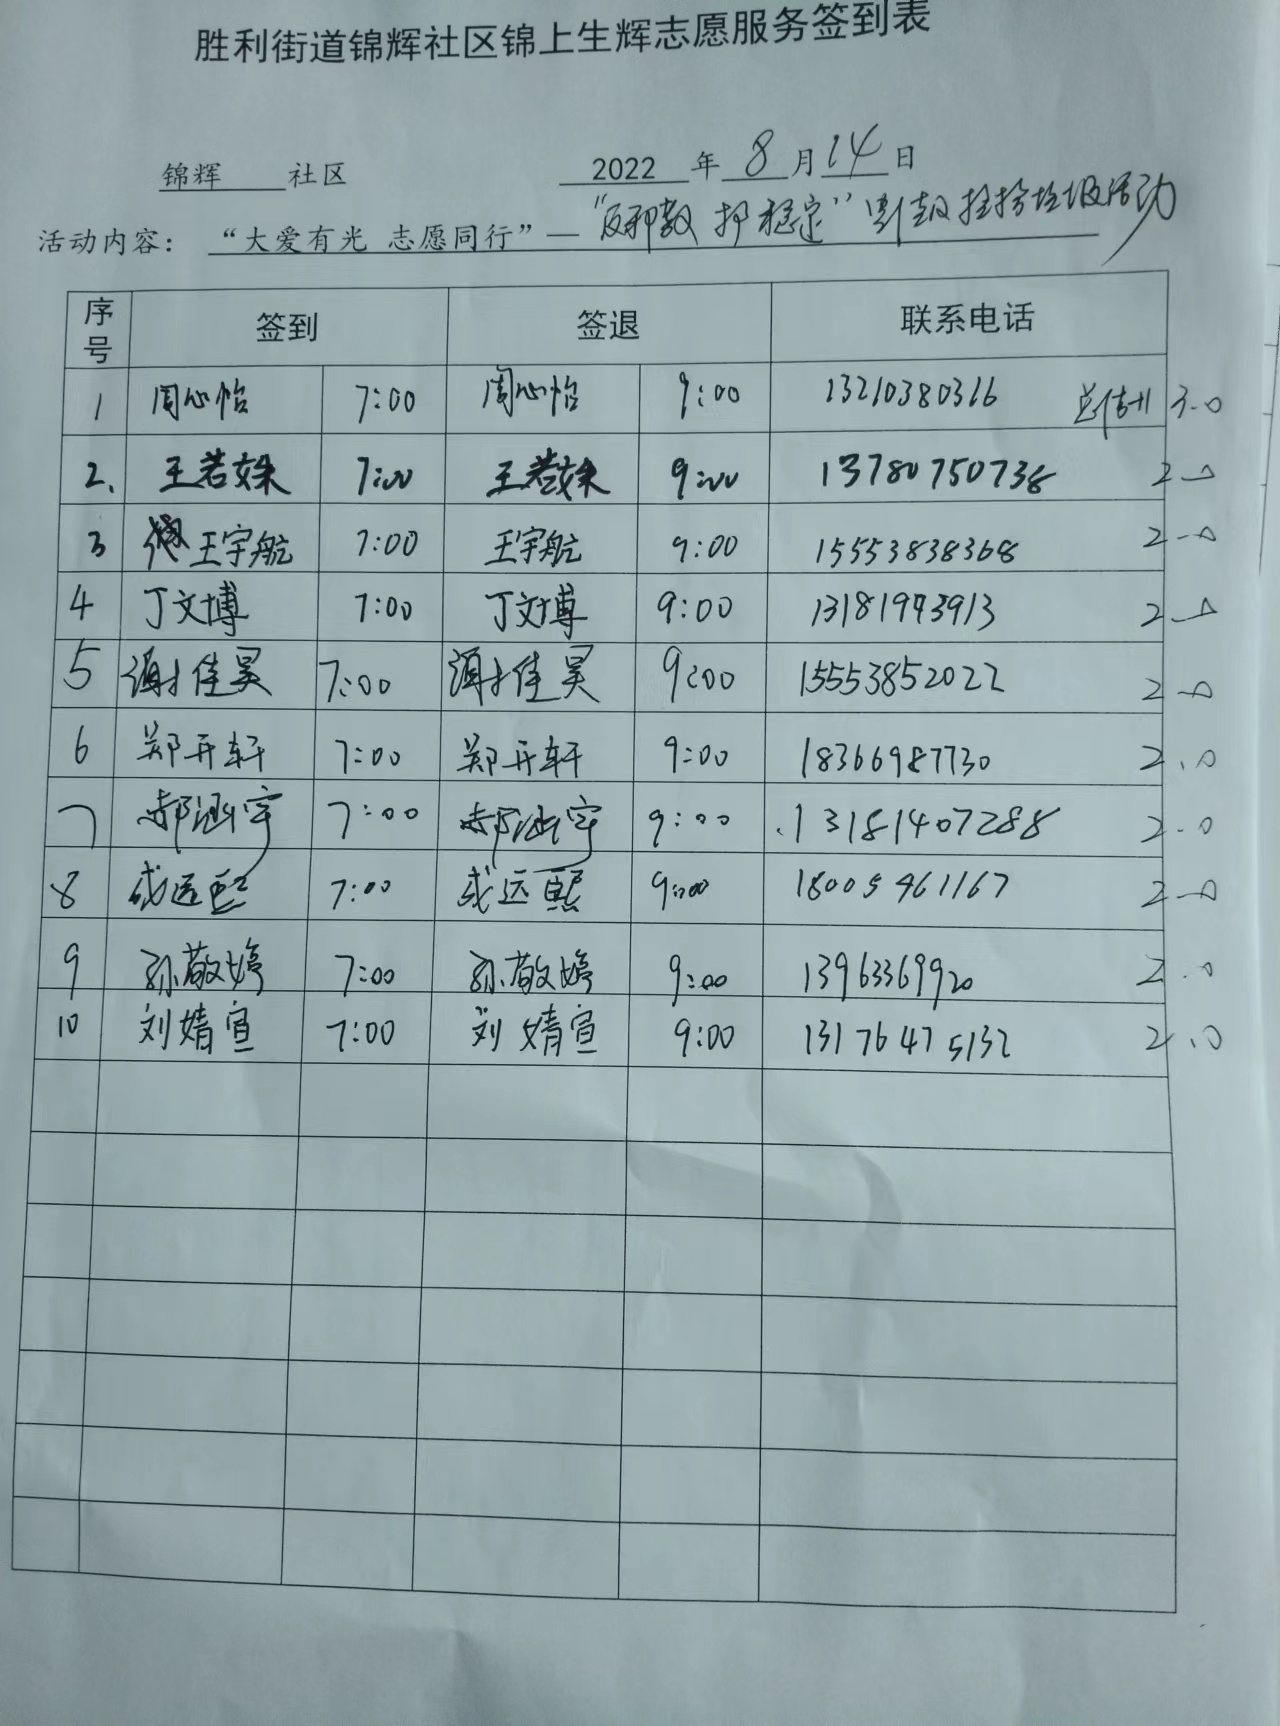 胜利街道锦辉社区锦上生辉志愿服务签到表
锦辉 社区 2022 年 8 月 14 日
活动内容： “大爱有光 志愿同行”— “反邪教 护稳定” 捡拾垃圾活动
序号 签到 签退 联系电话
1 周心怡 7:00 周心怡 9:00 13210380316 3.0
2. 王若姝 7:00 王若姝 9:00 13780750738 2.0
3 王宇航 7:00 王宇航 9:00 15553838368 2.0
4 丁文博 7:00 丁文博 9:00 13181993913 2.0
5 谢佳昊 7:00 谢佳昊 9:00 15553852022 2.0
6 郑开轩 7:00 郑开轩 9:00 18366987730 2.0
7 郝涵宇 7:00 郝涵宇 9:00 13181407288 2.0
8 成远熙 7:00 成远熙 9:00 18005461167 2.0
9 孙敬婷 7:00 孙敬婷 9:00 13963369920 2.0
10 刘婧宣 7:00 刘婧宣 9:00 13176475132 2.0